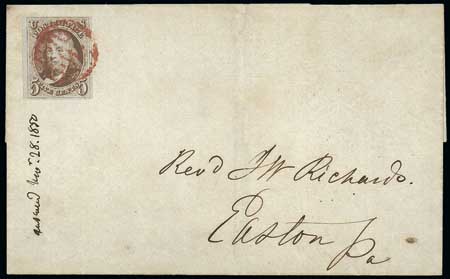 POST OFFICE
5 FIVE CENTS 5
Nov. 28. 1850
Revd J W Richards.
Easton
Pa